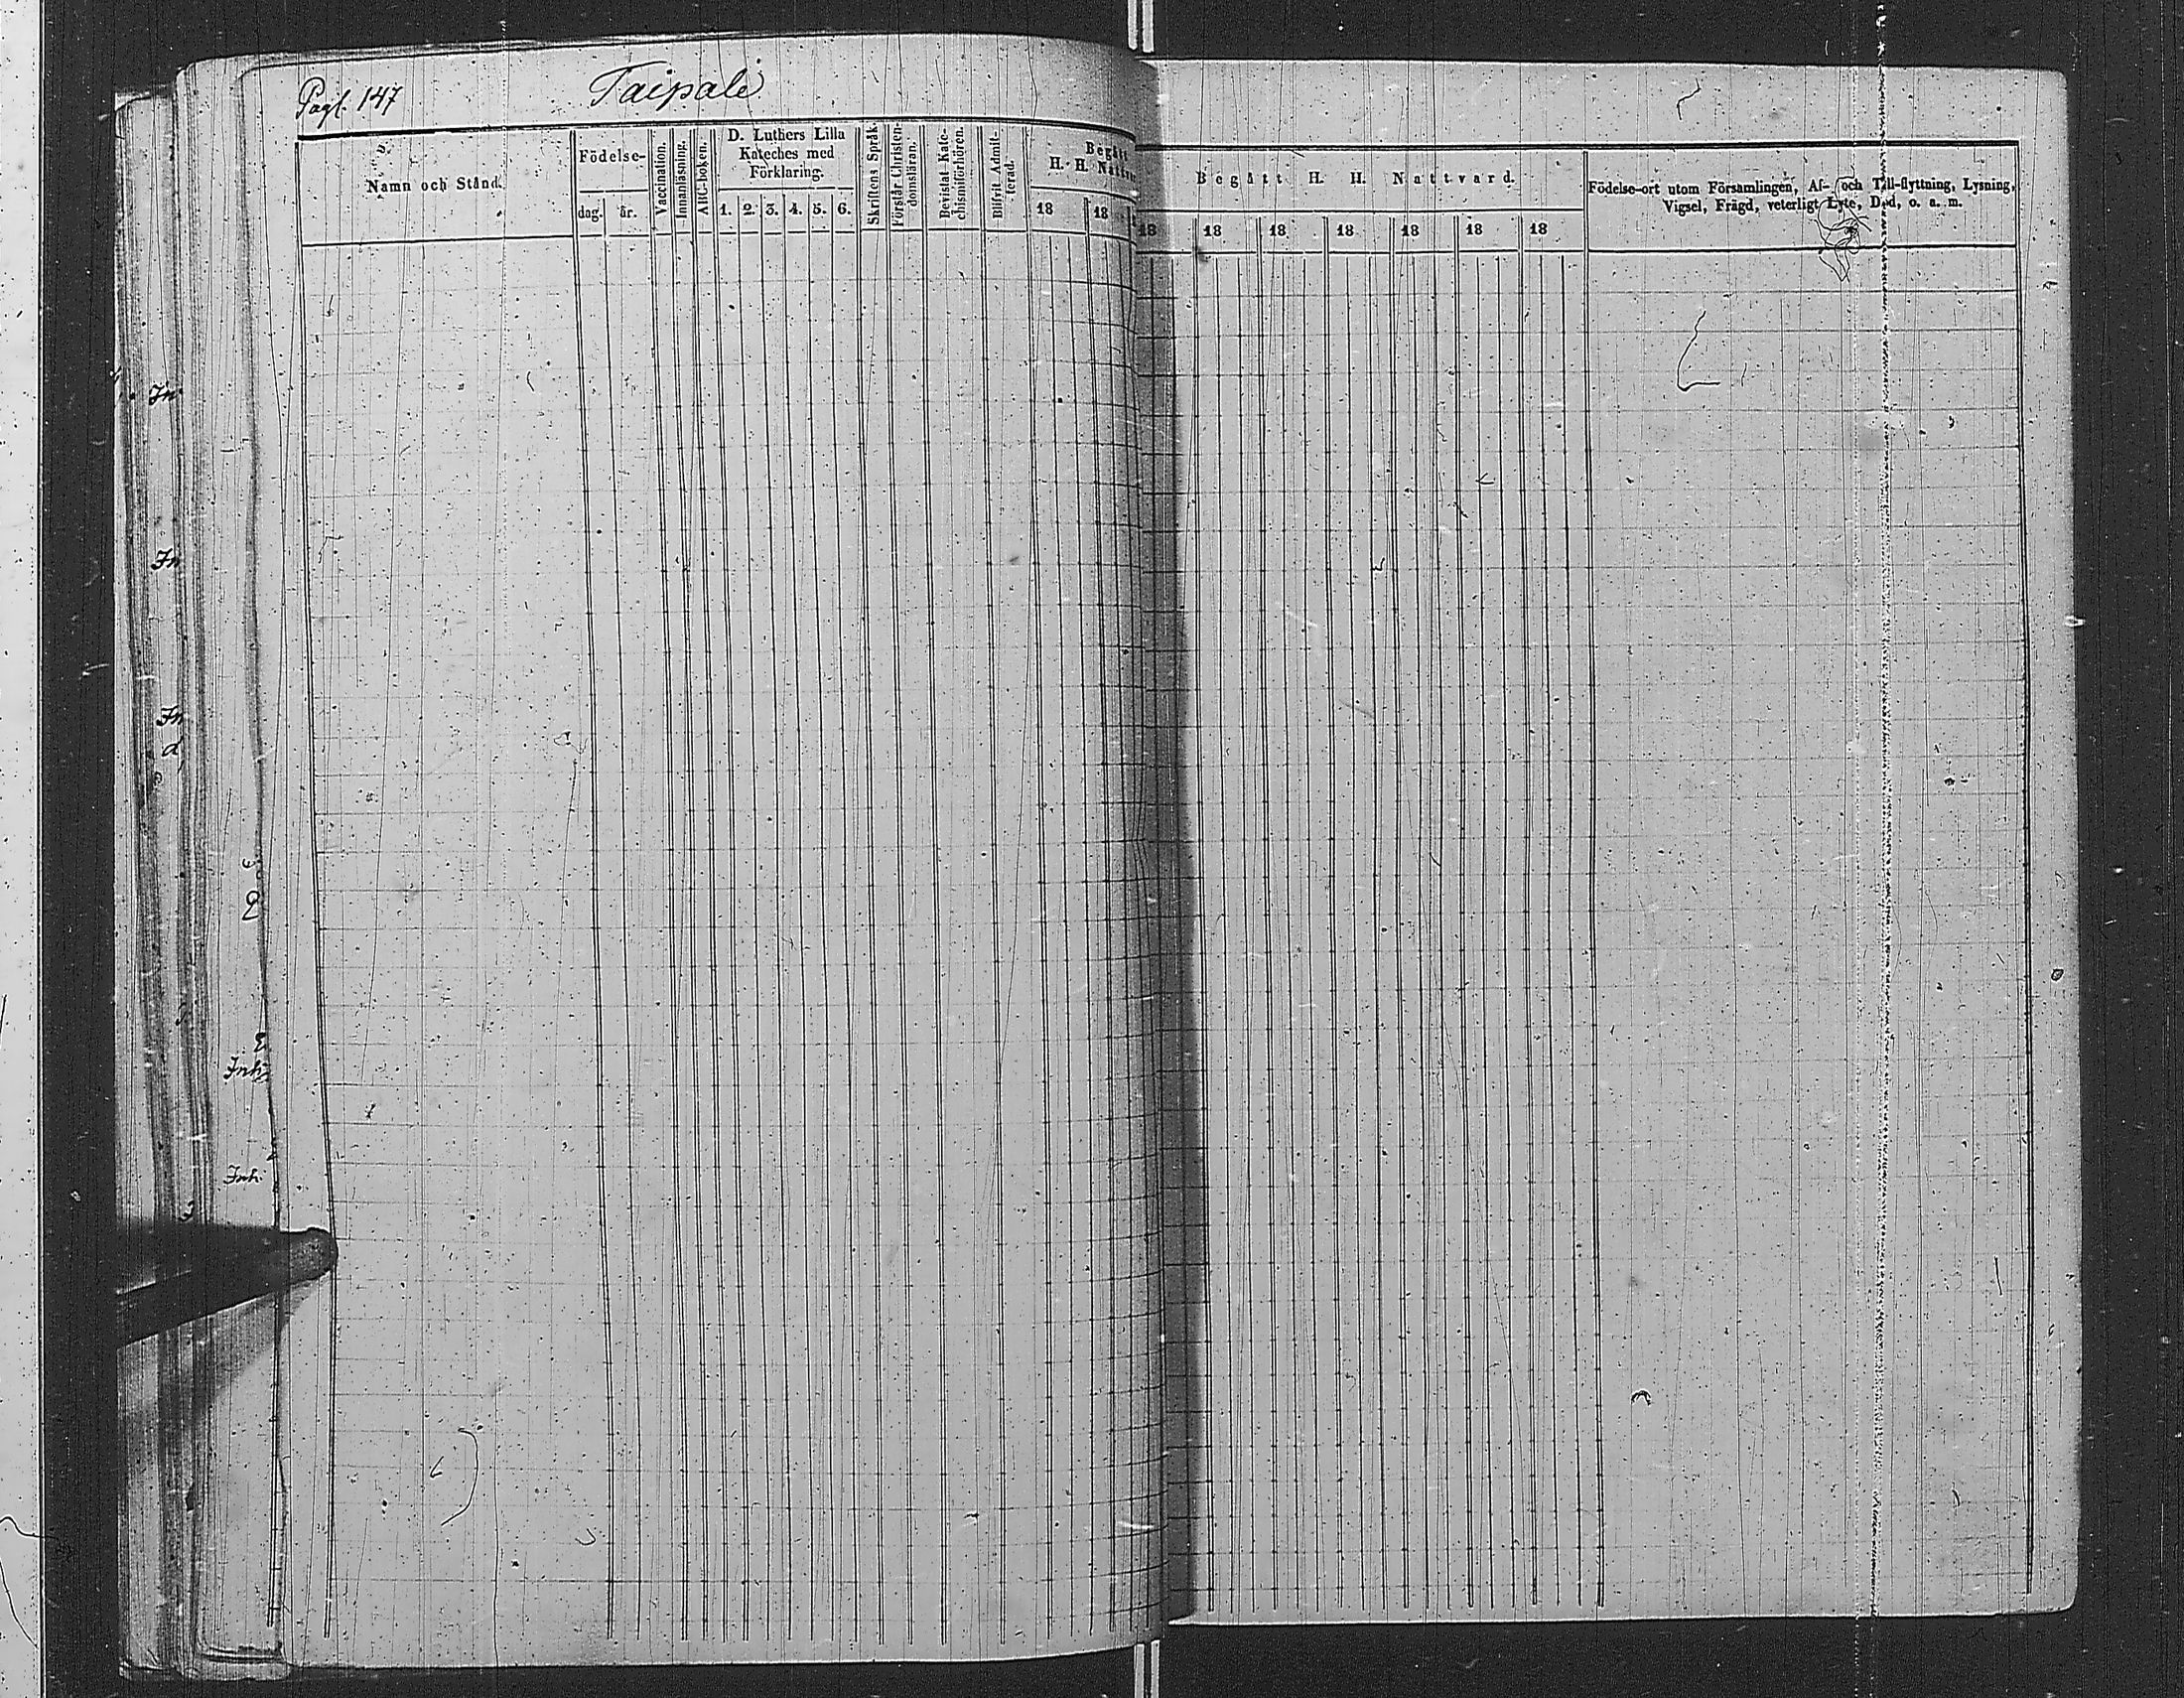 Pagl. 147
Taipale
Namn och Stånd.
Födelse-
dag.
år.
Vaccination.
Innanläsning.
ABC-boken.
D. Luthers Lilla
Kateches med
Förklaring.
1. 2. 3. 4. 5. 6.
Skriftens Språk.
Förstår Christen-
domsläran.
Bevistat Kate-
chismiförhören.
Blifvit Admit-
terad.
Begått
H. H. Nattv
18 18
Begått H. H. Nattvard.
18 18 18 18 18 18 18
Födelse-ort utom Församlingen, Af- och Till-flyttning, Lysning,
Vigsel, Frägd, veterligt Lyte, Död, o. a. m.
In
In
In
d
Inh.
Inh.